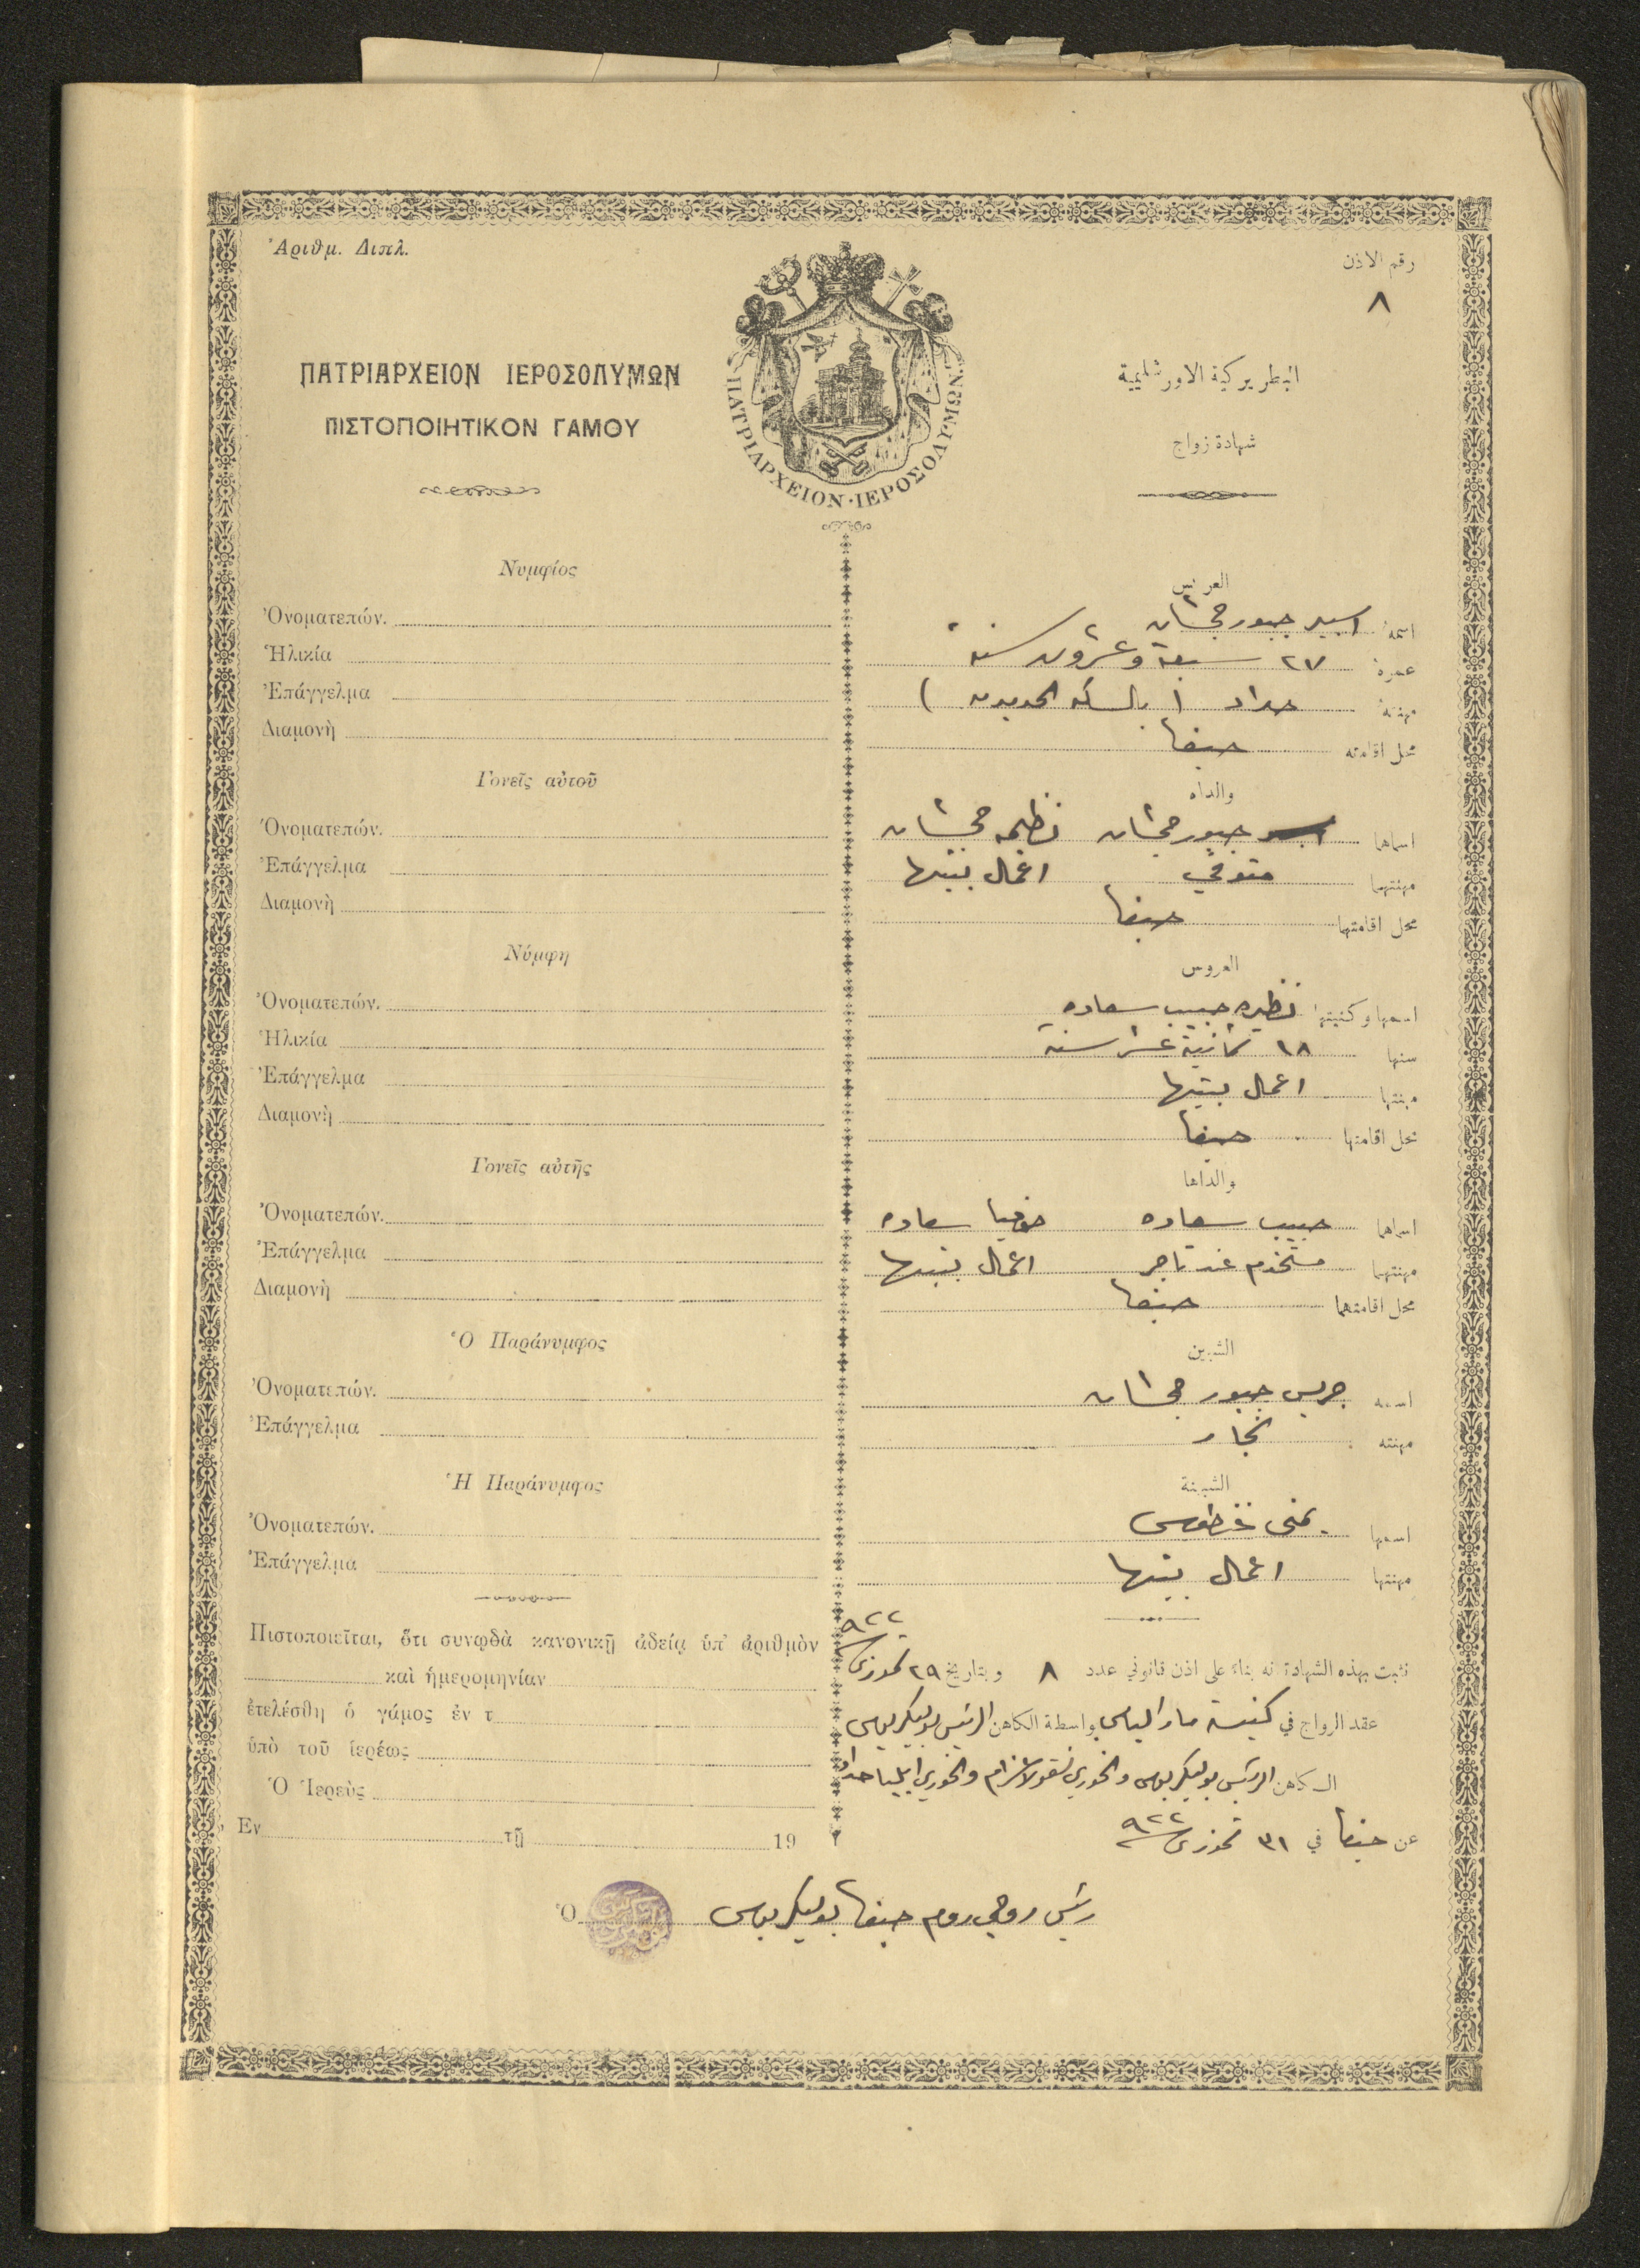 Ἀριθμ. Διπλ.
رقم الاذن
٨
ΠΑΤΡΙΑΡΧΕΙΟΝ ΙΕΡΟΣΟΛΥΜΩΝ
ΠΙΣΤΟΠΟΙΗΤΙΚΟΝ ΓΑΜΟΥ
ΠΑΤΡΙΑΡΧΕΙΟΝ·ΙΕΡΟΣΟΛΥΜΩΝ
البطريركية الاورشليمية
شهادة زواج
Νυμφίος
Ὀνοματεπών.
Ἡλικία
Ἐπάγγελμα
Διαμονὴ
Γονεῖς αὐτοῦ
Ὀνοματεπών.
Ἐπάγγελμα
Διαμονὴ
Νύμφη
Ὀνοματεπών.
Ἡλικία
Ἐπάγγελμα
Διαμονὴ
Γονεῖς αὐτῆς
Ὀνοματεπών.
Ἐπάγγελμα
Διαμονὴ
Ὁ Παράνυμφος
Ὀνοματεπών.
Ἐπάγγελμα
Ἡ Παράνυμφος
Ὀνοματεπών.
Ἐπάγγελμα
Πιστοποιεῖται, ὅτι συνῳδὰ κανονικῇ ἀδείᾳ ὑπ' ἀριθμὸν
καὶ ἡμερομηνίαν
ἐτελέσθη ὁ γάμος ἐν τ
ὑπὸ τοῦ ἱερέως
Ὁ Ἱερεὺς
Ἐν τῇ 19
العريس
اسمه جبور
عمره ٢٧ سبعة وعشرون سنة
مهنته حداد (بالسكه الحديديه)
محل اقامته حيفا
والداه
اسماهما جبور نظيمه
مهنتهما متوفي اعمال بيتها
محل اقامتهما حيفا
العروس
اسمها وكنيتها نظيره حبيب سعاده
سنها ١٨ ثمانية عشر سنة
مهنتها اعمال بيتها
محل اقامتها حيفا
والداها
اسماهما حبيب سعاده صوفيا سعاده
مهنتهما مستخدم عند تاجر اعمال بيتها
محل اقامتهما حيفا
الشبين
اسمه جريس جبور
مهنته نجار
الشبينة
اسمها يمنى غطوس
مهنتها اعمال بيتها
نثبت بهذه الشهادة انه بناء على اذن قانوني عدد ٨ وبتاريخ ٢٩ تموز ٩٢٢
عقد الزواج في كنيسة مار الياس بواسطة الكاهن الرئيس بوليكربوس
الكاهن الرئيس بوليكربوس والخوري نقولا والخوري ايليا حداد
عن حيفا في ٣١ تموز ٩٢٢
Ὁ رئيس روحي روم حيفا بوليكربوس